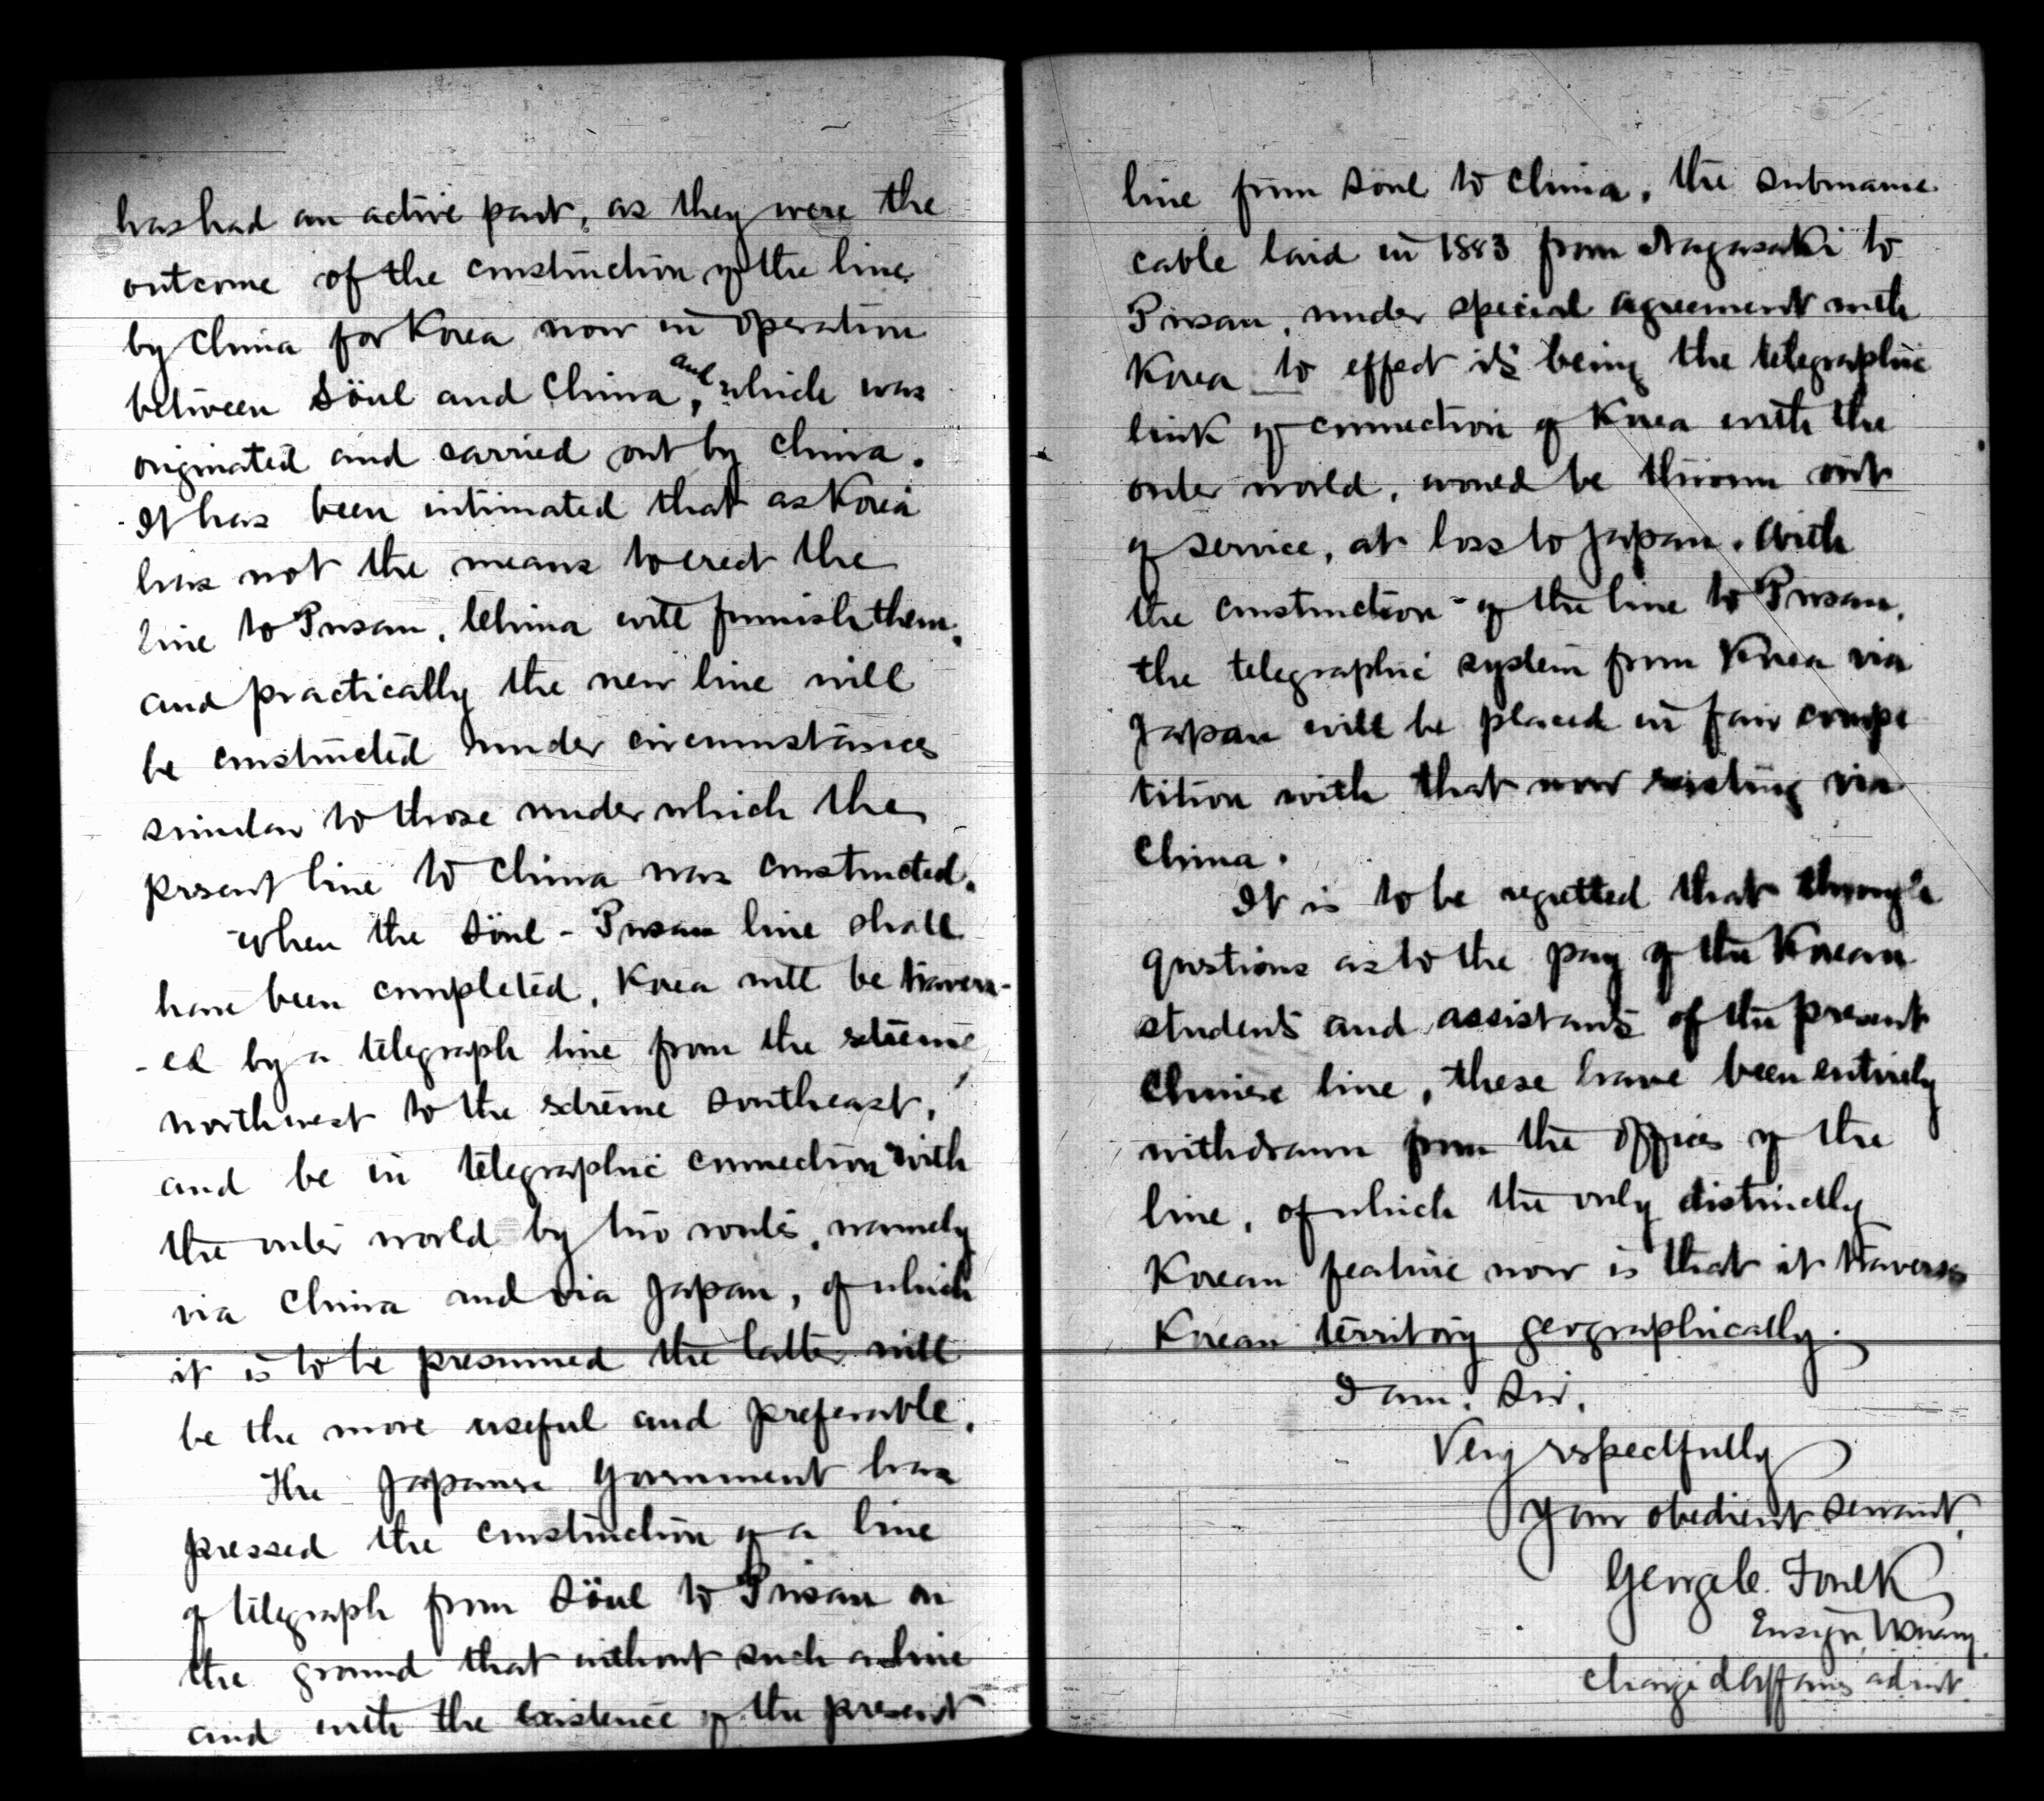 has had an active part, as they were the
outcome of the construction of the line
by China for Korea now in operation
between Söul and China, and which was
originated and carried out by China.
It has been intimated that as Korea
has not the means to erect the
line to Pusan, China will furnish them,
and practically the new line will
be constructed under circumstances
similar to those under which the
present line to China was constructed.
When the Söul - Pusan line shall
have been completed, Korea will be travers-
-ed by a telegraph line from the extreme
northwest to the extreme southeast,
and be in telegraphic connection with
the outer world by two routes, namely
via China and via Japan, of which
it is to be presumed the latter will
be the more useful and preferable.
The Japanese Government has
pressed the construction of a line
of telegraph from Söul to Pusan on
the ground that without such a line
and with the existence of the present
line from Söul to China, the submarine
cable laid in 1883 from Nagasaki to
Pusan, under special agreement with
Korea to effect its being the telegraphic
link of connection of Korea with the
outer world, would be thrown out
of service, at loss to Japan. With
the construction of the line to Pusan,
the telegraphic system from Korea via
Japan will be placed in fair compe
tition with that now existing via
China.
It is to be regretted that through
questions as to the pay of the Korean
students and assistants of the present
Chinese line, these have been entirely
withdrawn from the offices of the
line, of which the only distinctly
Korean feature now is that it traverses
Korean territory geographically.
I am, Sir,
Very respectfully
Your obedient servant,
George C. Foulk
Ensign, U.S. Navy
Chargé d'Affaires ad int.